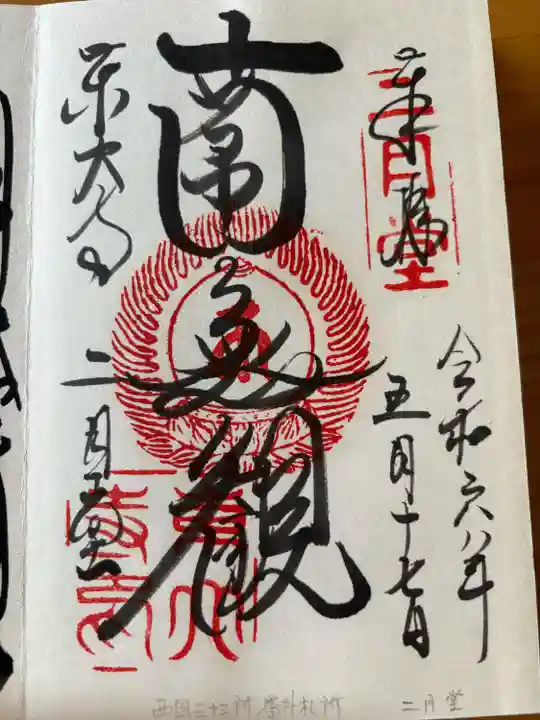 奉拝
二月堂
令和六年
五月十七日
南無観
東大寺
二月堂
西国三十三所 番外札所 二月堂